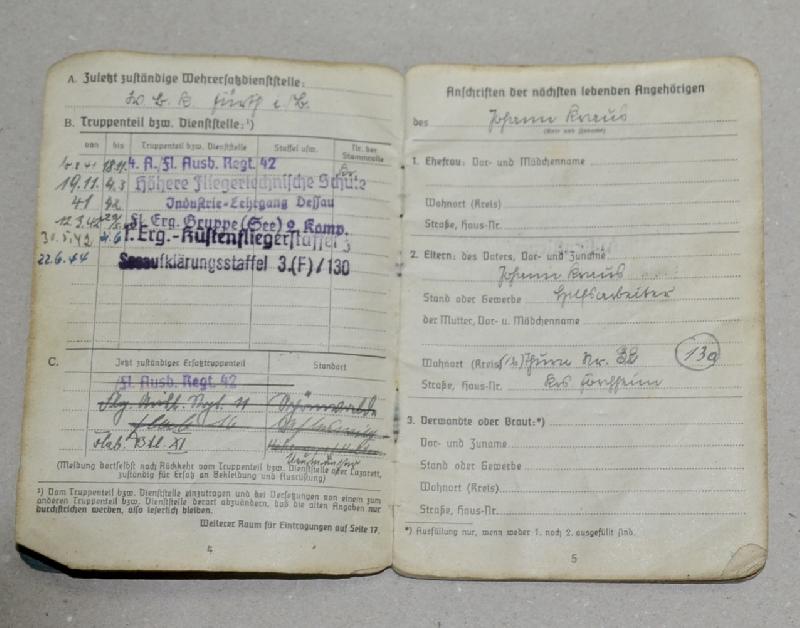 A. Zuletzt zuständige Wehrersatzdienststelle:
W. B. K. Fürth i/B.
B. Truppenteil bzw. Dienststelle:¹)
von bis Truppenteil bzw. Dienststelle Staffel usw. Nr. der Stammrolle
4. A./Fl. Ausb. Regt. 42
19.11. 9.3 Höhere Fliegertechnische Schule
41 42 Industrie-Lehrgang Dessau
12.3.42 Fl. Erg. Gruppe (See) 2. Komp.
30.5.42 1.Erg.-Küstenfliegerstaffel
22.6.44 Seeaufklärungsstaffel 3.(F)/130
C. Jetzt zuständiger Ersatztruppenteil Standort
Fl. Ausb. Regt. 42
Schönwalde
Flab. Btl. XI
(Meldung dortselbst nach Rückkehr vom Truppenteil bzw. Dienststelle oder Lazarett,
zuständig für Ersatz an Bekleidung und Ausrüstung)
¹) Vom Truppenteil bzw. Dienststelle einzutragen und bei Versetzungen von einem zum
anderen Truppenteil bzw. Dienststelle derart abzuändern, daß die alten Angaben nur
durchstrichen werden, also leserlich bleiben.
Weiterer Raum für Eintragungen auf Seite 17.
4
Anschriften der nächsten lebenden Angehörigen
des Johann Kraus
(Vor- und Zuname)
1. Ehefrau: Vor- und Mädchenname
Wohnort (Kreis)
Straße, Haus-Nr.
2. Eltern: des Vaters, Vor- und Zuname
Johann Kraus
Stand oder Gewerbe Hilfsarbeiter
der Mutter, Vor- u. Mädchenname
Wohnort (Kreis) Thurn Nr. 32 13a
Straße, Haus-Nr. Krs Forchheim
3. Verwandte oder Braut:*)
Vor- und Zuname
Stand oder Gewerbe
Wohnort (Kreis)
Straße, Haus-Nr.
*) Ausfüllung nur, wenn weder 1. noch 2. ausgefüllt sind.
5